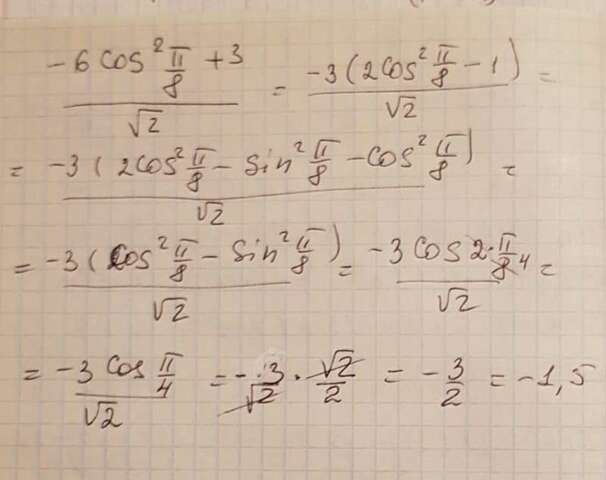 (-6cos²π/8 + 3)/√2 = (-3(2cos²π/8 - 1))/√2 =
= (-3(2cos²π/8 - sin²π/8 - cos²π/8))/√2 =
= (-3(cos²π/8 - sin²π/8))/√2 = (-3cos2·π/8 4)/√2 =
= (-3cosπ/4)/√2 = -3/√2 · √2/2 = -3/2 = -1,5